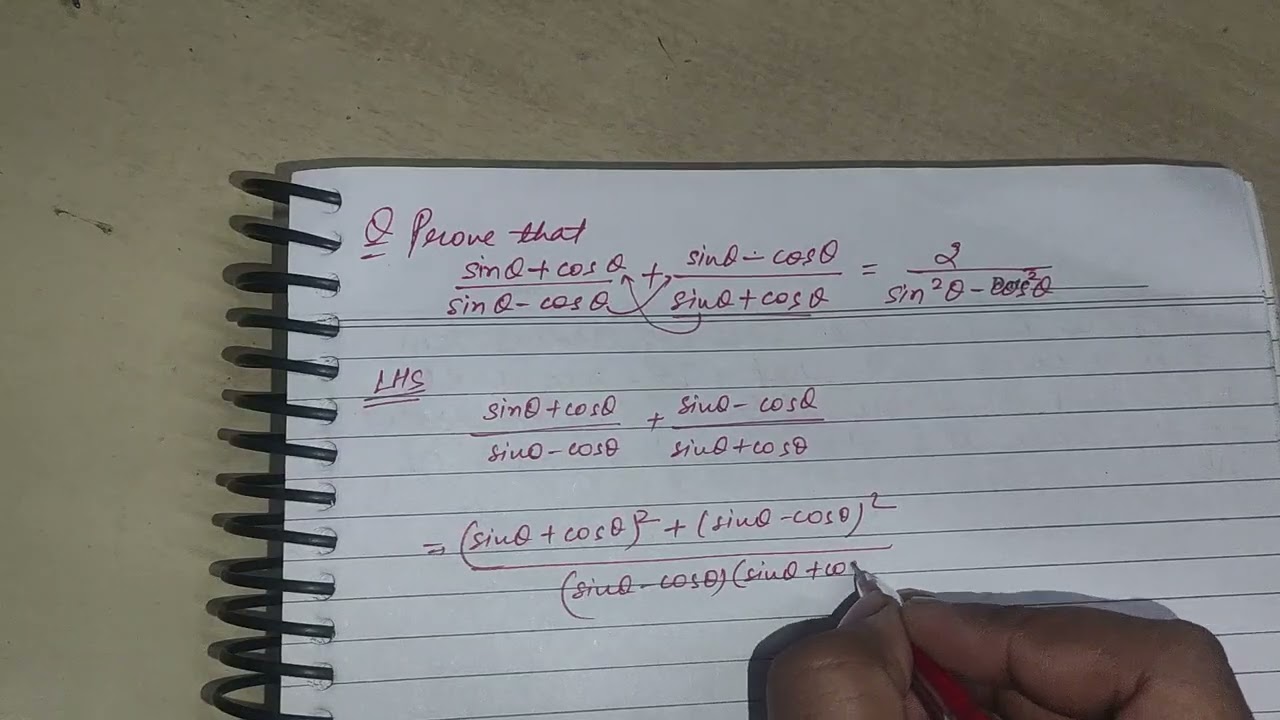 Q Prove that
sinθ + cosθ / sinθ - cosθ + sinθ - cosθ / sinθ + cosθ = 2 / sin²θ - cos²θ
LHS
sinθ + cosθ / sinθ - cosθ + sinθ - cosθ / sinθ + cosθ
= (sinθ + cosθ)² + (sinθ - cosθ)² / (sinθ - cosθ) (sinθ + cos